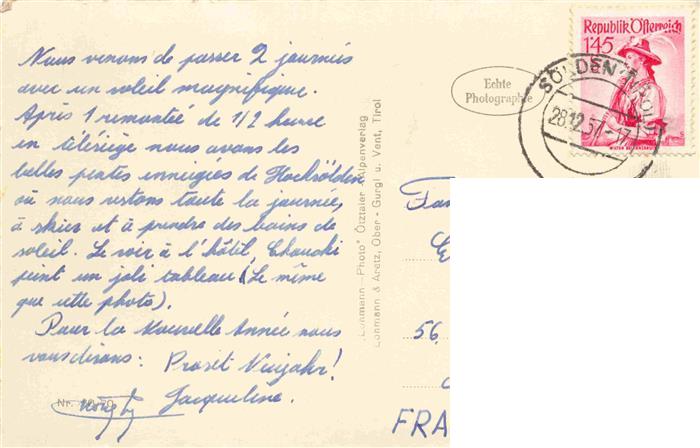 Nous venons de passer 2 journées
avec un soleil magnifique.
Après 1 remontée de 1/2 heure
en télésiège nous avons les
belles pentes enneigées de Hochsölden
où nous restons toute la journée,
à skier et à prendre des bains de
soleil. Le soir à l'hôtel, Chouchi
peint un joli tableau (Le même
que cette photo).
Pour la Nouvelle Année nous
vous disons : Prosit Neujahr!
Jacqueline.
Nr.
Lohmann "Photo" Ötztaler Alpenverlag
Lohmann & Aretz, Ober-Gurgl u. Vent, Tirol
Echte
Photographie
Republik Österreich
1'45
SÖLDEN
28.12.57-17
Fam
56.
FRA